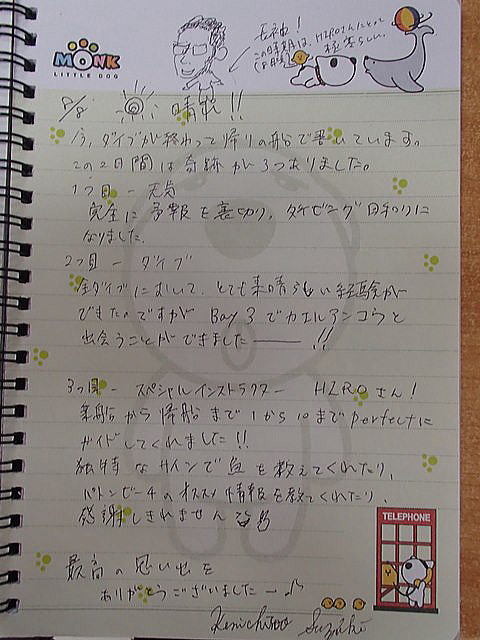 MONK
LITTLE DOG
長袖!
この時期は、HIROさんにとって
極寒らしい。
8/8 晴れ!!
今、ダイブが終わって帰りの船で書いています。
この2日間は奇跡が3つありました。
1つ目 - 天気
完全に予報を裏切り、ダイビング日和りに
なりました。
2つ目 - ダイブ
全ダイブにおいて、とても素晴らしい経験が
できたのですが Bay 3 でカエルアンコウと
出会うことができました――!!
3つ目 - スペシャルインストラクター HIROさん!
乗船から降船まで1から10までperfectに
ガイドしてくれました!!
独特なサインで魚を教えてくれたり、
パトンビーチのオススメ情報を教えてくれたり、
感謝しきれません
TELEPHONE
最高の思い出を
ありがとうございましたー♪
Kenichiroo Suzuki